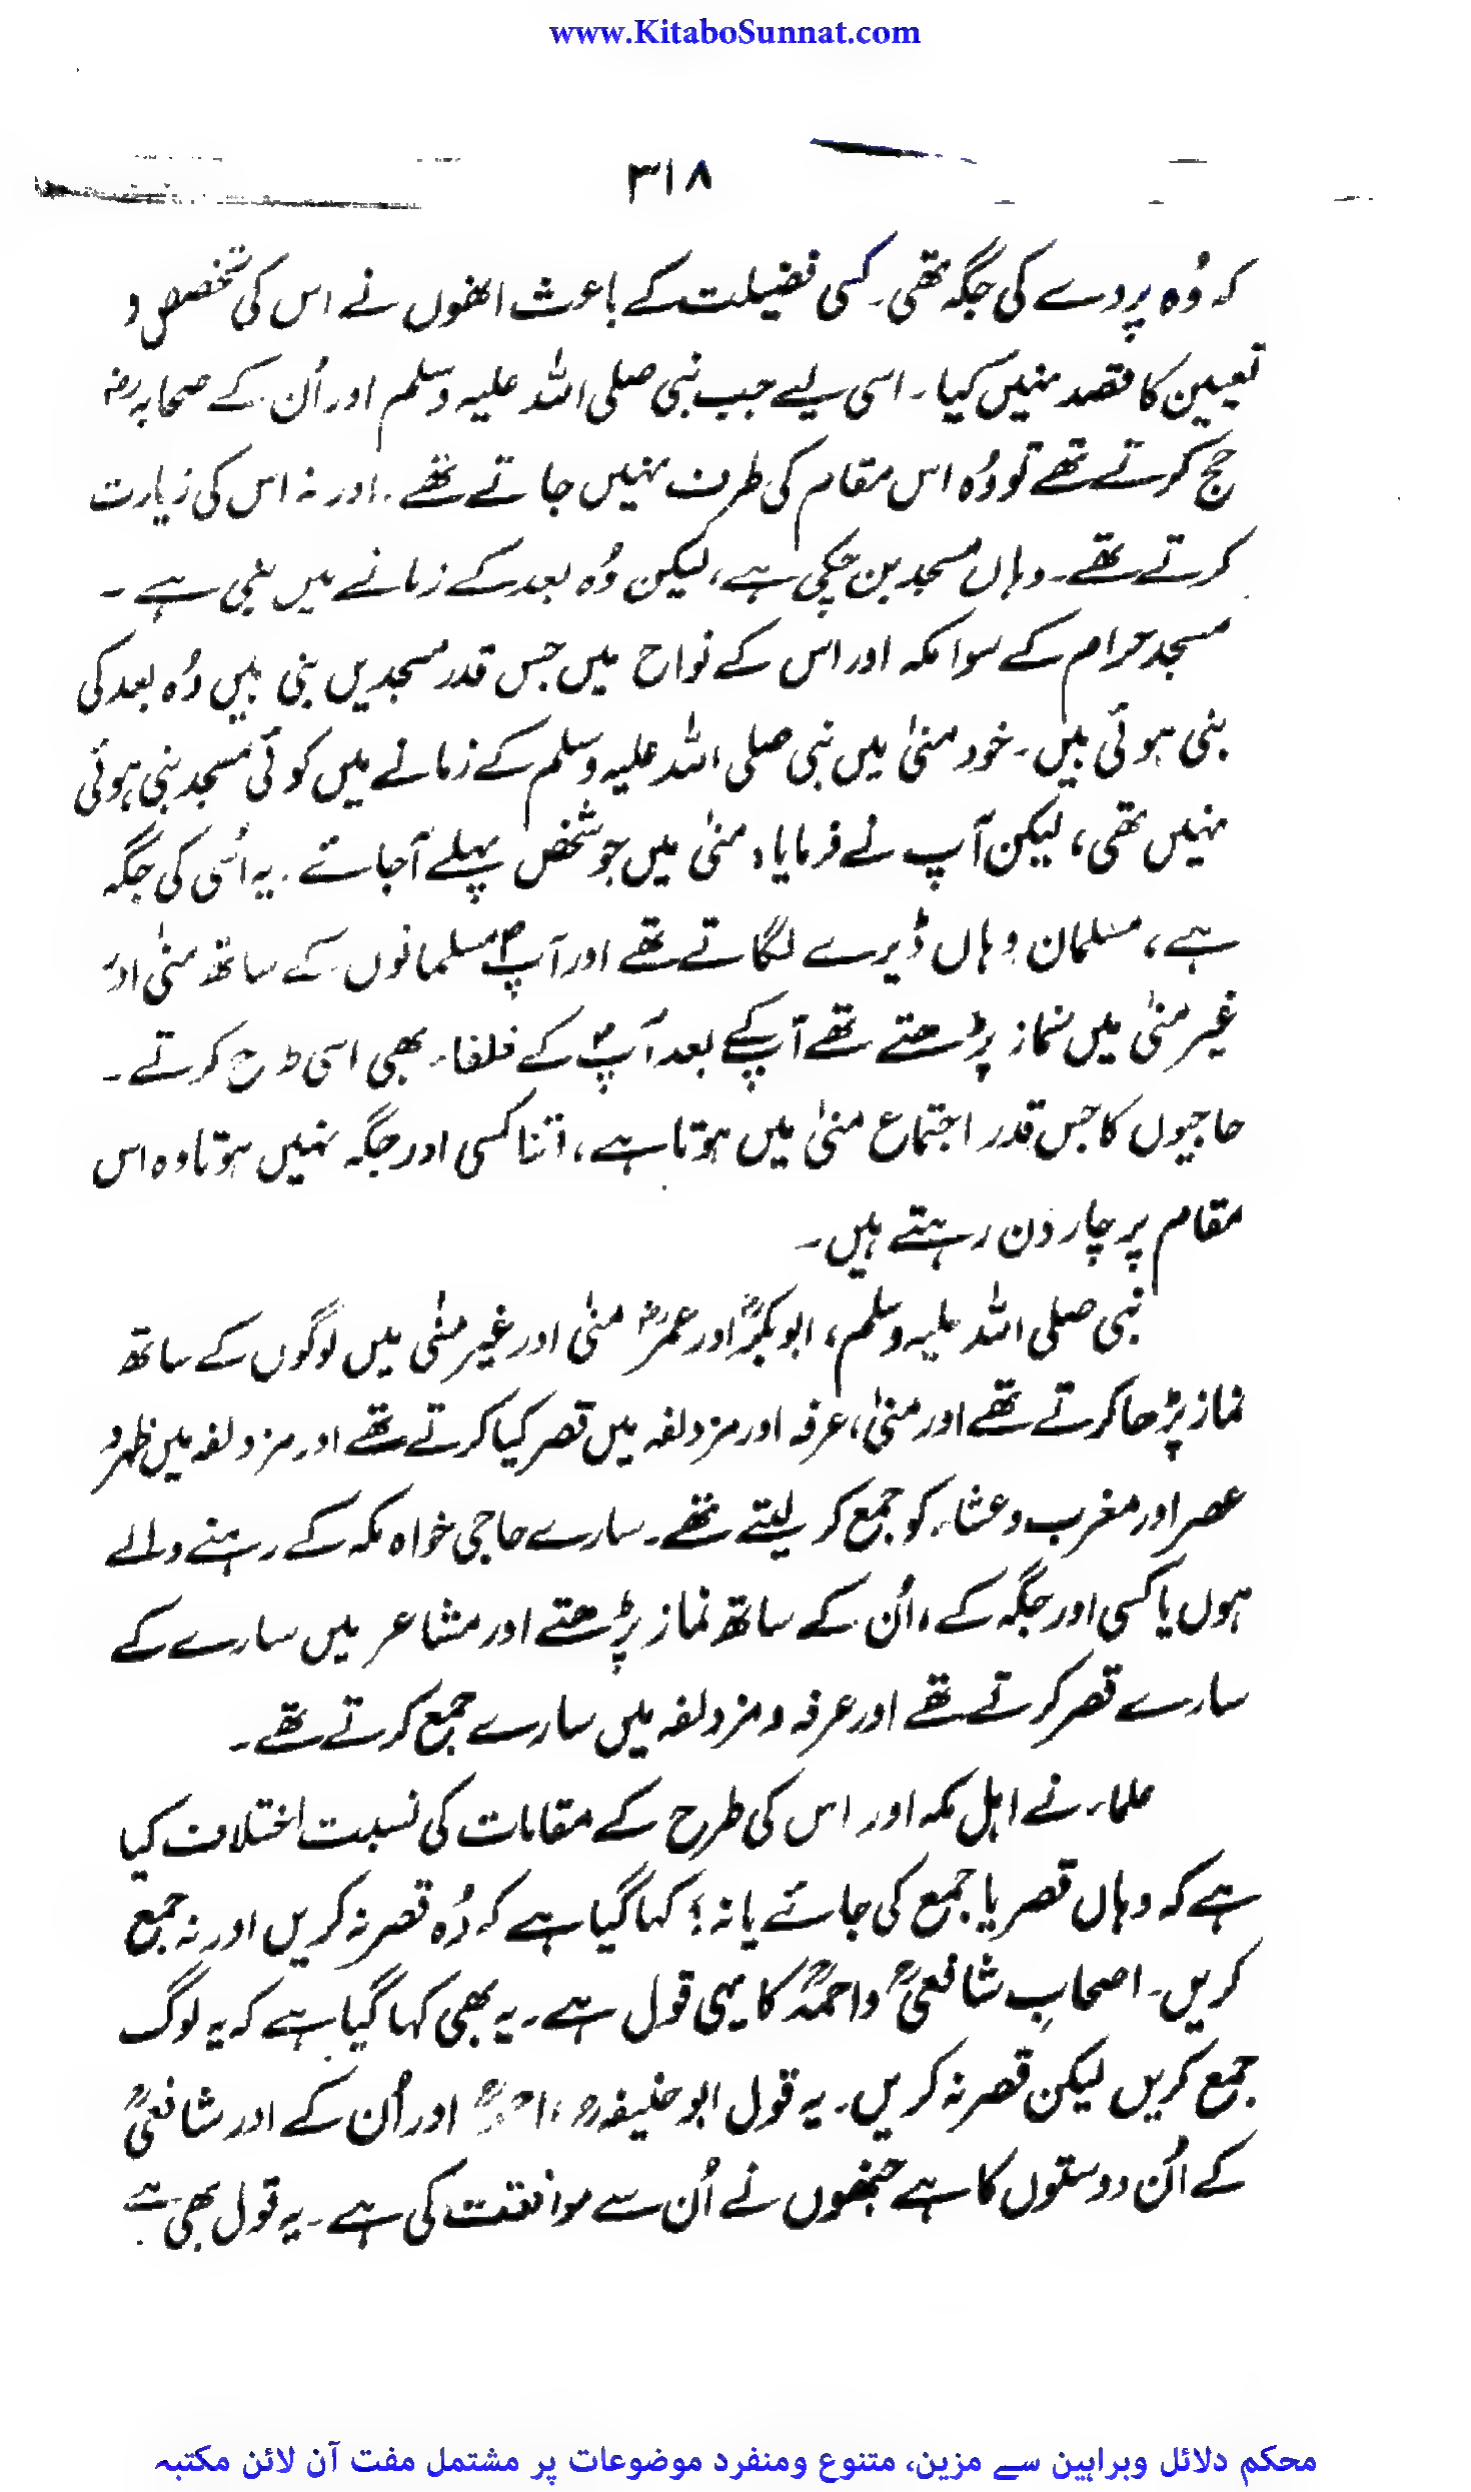 www.KitaboSunnat.com
۳۱۸
کہ وُہ پردے کی جگہ تھی۔ کسی فضیلت کے باعث انھوں نے اس کی تخصیص و
تعیین کا قصد نہیں کیا۔ اسی لیے جب نبی صلی اللہ علیہ وسلم اور اُن کے صحابہ رضؓ
حج کرتے تھے تو وُہ اس مقام کی طرف نہیں جاتے تھے۔ اور نہ اس کی زیارت
کرتے تھے۔ وہاں مسجد بن چکی ہے، لیکن وُہ بعد کے زمانے میں بنی ہے۔
مسجد حرام کے سوا مکہ اور اس کے نواح میں جس قدر مسجدیں بنی ہیں وُہ بعد کی
بنی ہوئی ہیں۔ خود منیٰ میں نبی صلی اللہ علیہ وسلم کے زمانے میں کوئی مسجد بنی ہوئی
نہیں تھی، لیکن آپ نے فرمایا، منیٰ میں جو شخص پہلے آجاتے۔ یہ اُسی کی جگہ
ہے، مسلمان وہاں ڈیرے لگاتے تھے اور آپؐ مسلمانوں کے ساتھ منیٰ اور
غیر منیٰ میں نماز پڑھتے تھے آپ کے بعد آپؐ کے خلفاء بھی اسی طرح کرتے۔
حاجیوں کا جس قدر اجتماع منیٰ میں ہوتا ہے، اتنا کسی اور جگہ نہیں ہوتا وہ اس
مقام پر چار دن رہتے ہیں۔
نبی صلی اللہ علیہ وسلم، ابوبکرؓ اور عمرؓ منیٰ اور غیر منیٰ میں لوگوں کے ساتھ
نماز پڑھا کرتے تھے اور منیٰ، عرفہ اور مزدلفہ میں قصر کیا کرتے تھے اور مزدلفہ میں ظہر و
عصر اور مغرب و عشاء کو جمع کر لیتے تھے۔ سارے حاجی خواہ مکہ کے رہنے والے
ہوں یا کسی اور جگہ کے، اُن کے ساتھ نماز پڑھتے اور مشاعر میں سارے کے
سارے قصر کرتے تھے اور عرفہ و مزدلفہ میں سارے جمع کرتے تھے۔
علماء نے اہل مکہ اور اس کی طرح کے مقامات کی نسبت اختلاف کیا
ہے کہ وہاں قصر یا جمع کی جائے یا نہ؛ کہا گیا ہے کہ وُہ قصر نہ کریں اور نہ جمع
کریں۔ اصحابِ شافعیؒ و احمدؒ کا یہی قول ہے۔ یہ بھی کہا گیا ہے کہ یہ لوگ
جمع کریں لیکن قصر نہ کریں۔ یہ قول ابو حنیفہؒ، احمدؒ اور اُن کے اور شافعیؒ
کے اُن دوستوں کا ہے جنھوں نے اُن سے موافقت کی ہے۔ یہ قول بھی ہے
محکم دلائل وبراہین سے مزین، متنوع ومنفرد موضوعات پر مشتمل مفت آن لائن مکتبہ